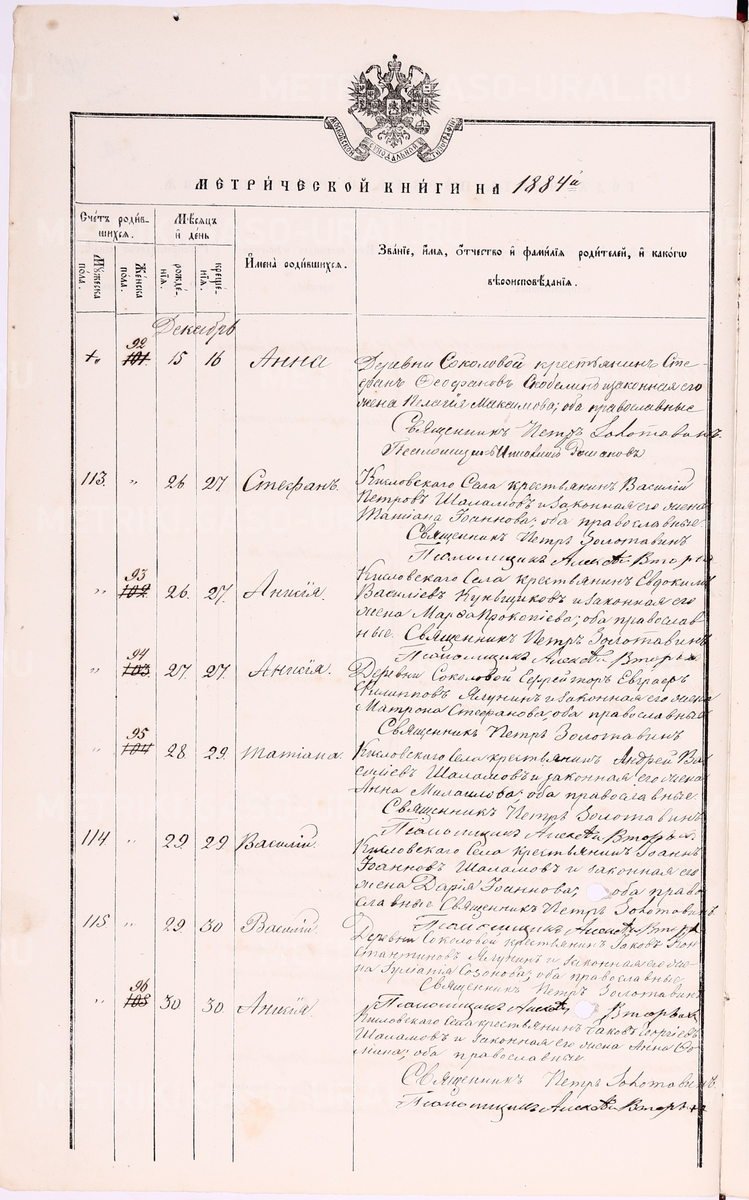 МОСКОВСКОЙ СѴНОДАЛЬНОЙ ТИПОГРАФІИ
МЕТРИ́ЧЕСКОЙ КНИ́ГИ НА 1884й
Сче́тъ роди́вшихся.
Мꙋ́жеска по́ла.
Же́нска по́ла.
Мѣ́сяцъ и҆ де́нь
рожде́нїѧ.
креще́нїѧ.
И҆мена̀ роди́вшихся.
Зва́нїе, и҆́мѧ, ѻ҆́тчество и҆ фами́лїѧ роди́телей, и҆ како́гѡ
вѣроисповѣ́данїѧ.
Декабрь
92
101 15 16 Анна Деревни Соколовой крестьянинъ Сте-
фанъ Феофановъ Скобелинъ и законная его
жена Пелагія Максимова; оба православные
Священникъ Петръ Золотавинъ.
Псаломщикъ
113. " 26 27 Стефанъ. Кисловскаго Села крестьянинъ Василій
Петровъ Шаламовъ и законная его жена
Татіана Іоаннова; оба православные.
Священникъ Петръ Золотавинъ
Псаломщикъ Алексѣй Вторыхъ
93
" 102 26. 27. Анисія. Кисловскаго Села крестьянинъ Евдокимъ
Василіевъ Кукьщиковъ и законная его
жена Марѳа Прокопіева; оба православ-
ные. Священникъ Петръ Золотавинъ
Псаломщикъ Алексѣй Вторыхъ
94
" 103 27. 27. Анисія. Деревни Соколовой Ефрейторъ Евграфъ
Филипповъ Ялунинъ и законная его жена
Матрона Стефанова; оба православные
Священникъ Петръ Золотавинъ
95
" 104 28 29. Татіана. Кисловскаго села крестьянинъ Андрей Ва-
силіевъ Шаламовъ и законная его жена
Анна Михаилова; оба православные.
Священникъ Петръ Золотавинъ
Псаломщикъ Алексѣй Вторыхъ.
114 " 29 29 Василій. Кисловскаго Села крестьянинъ Іоаннъ
Іоанновъ Шаламовъ и законная его
жена Дарія Іоаннова; оба право-
славные Священникъ Петръ Золотавинъ
Псаломщикъ Алексѣй Вторыхъ
115 " 29 30 Василій. Деревни Соколовой крестьянинъ Іаковъ Кон-
стантиновъ Ялунинъ и законная его же-
на Созонова; оба православные
Священникъ Петръ Золотавинъ
Псаломщикъ Алексѣй Вторыхъ
96
" 105 30 30 Анисія. Кисловскаго Села крестьянинъ Іаковъ Георгіевъ
Шаламовъ и законная его жена Анна
оба православные
Священникъ Петръ Золотавинъ.
Псаломщикъ Алексѣй Вторыхъ